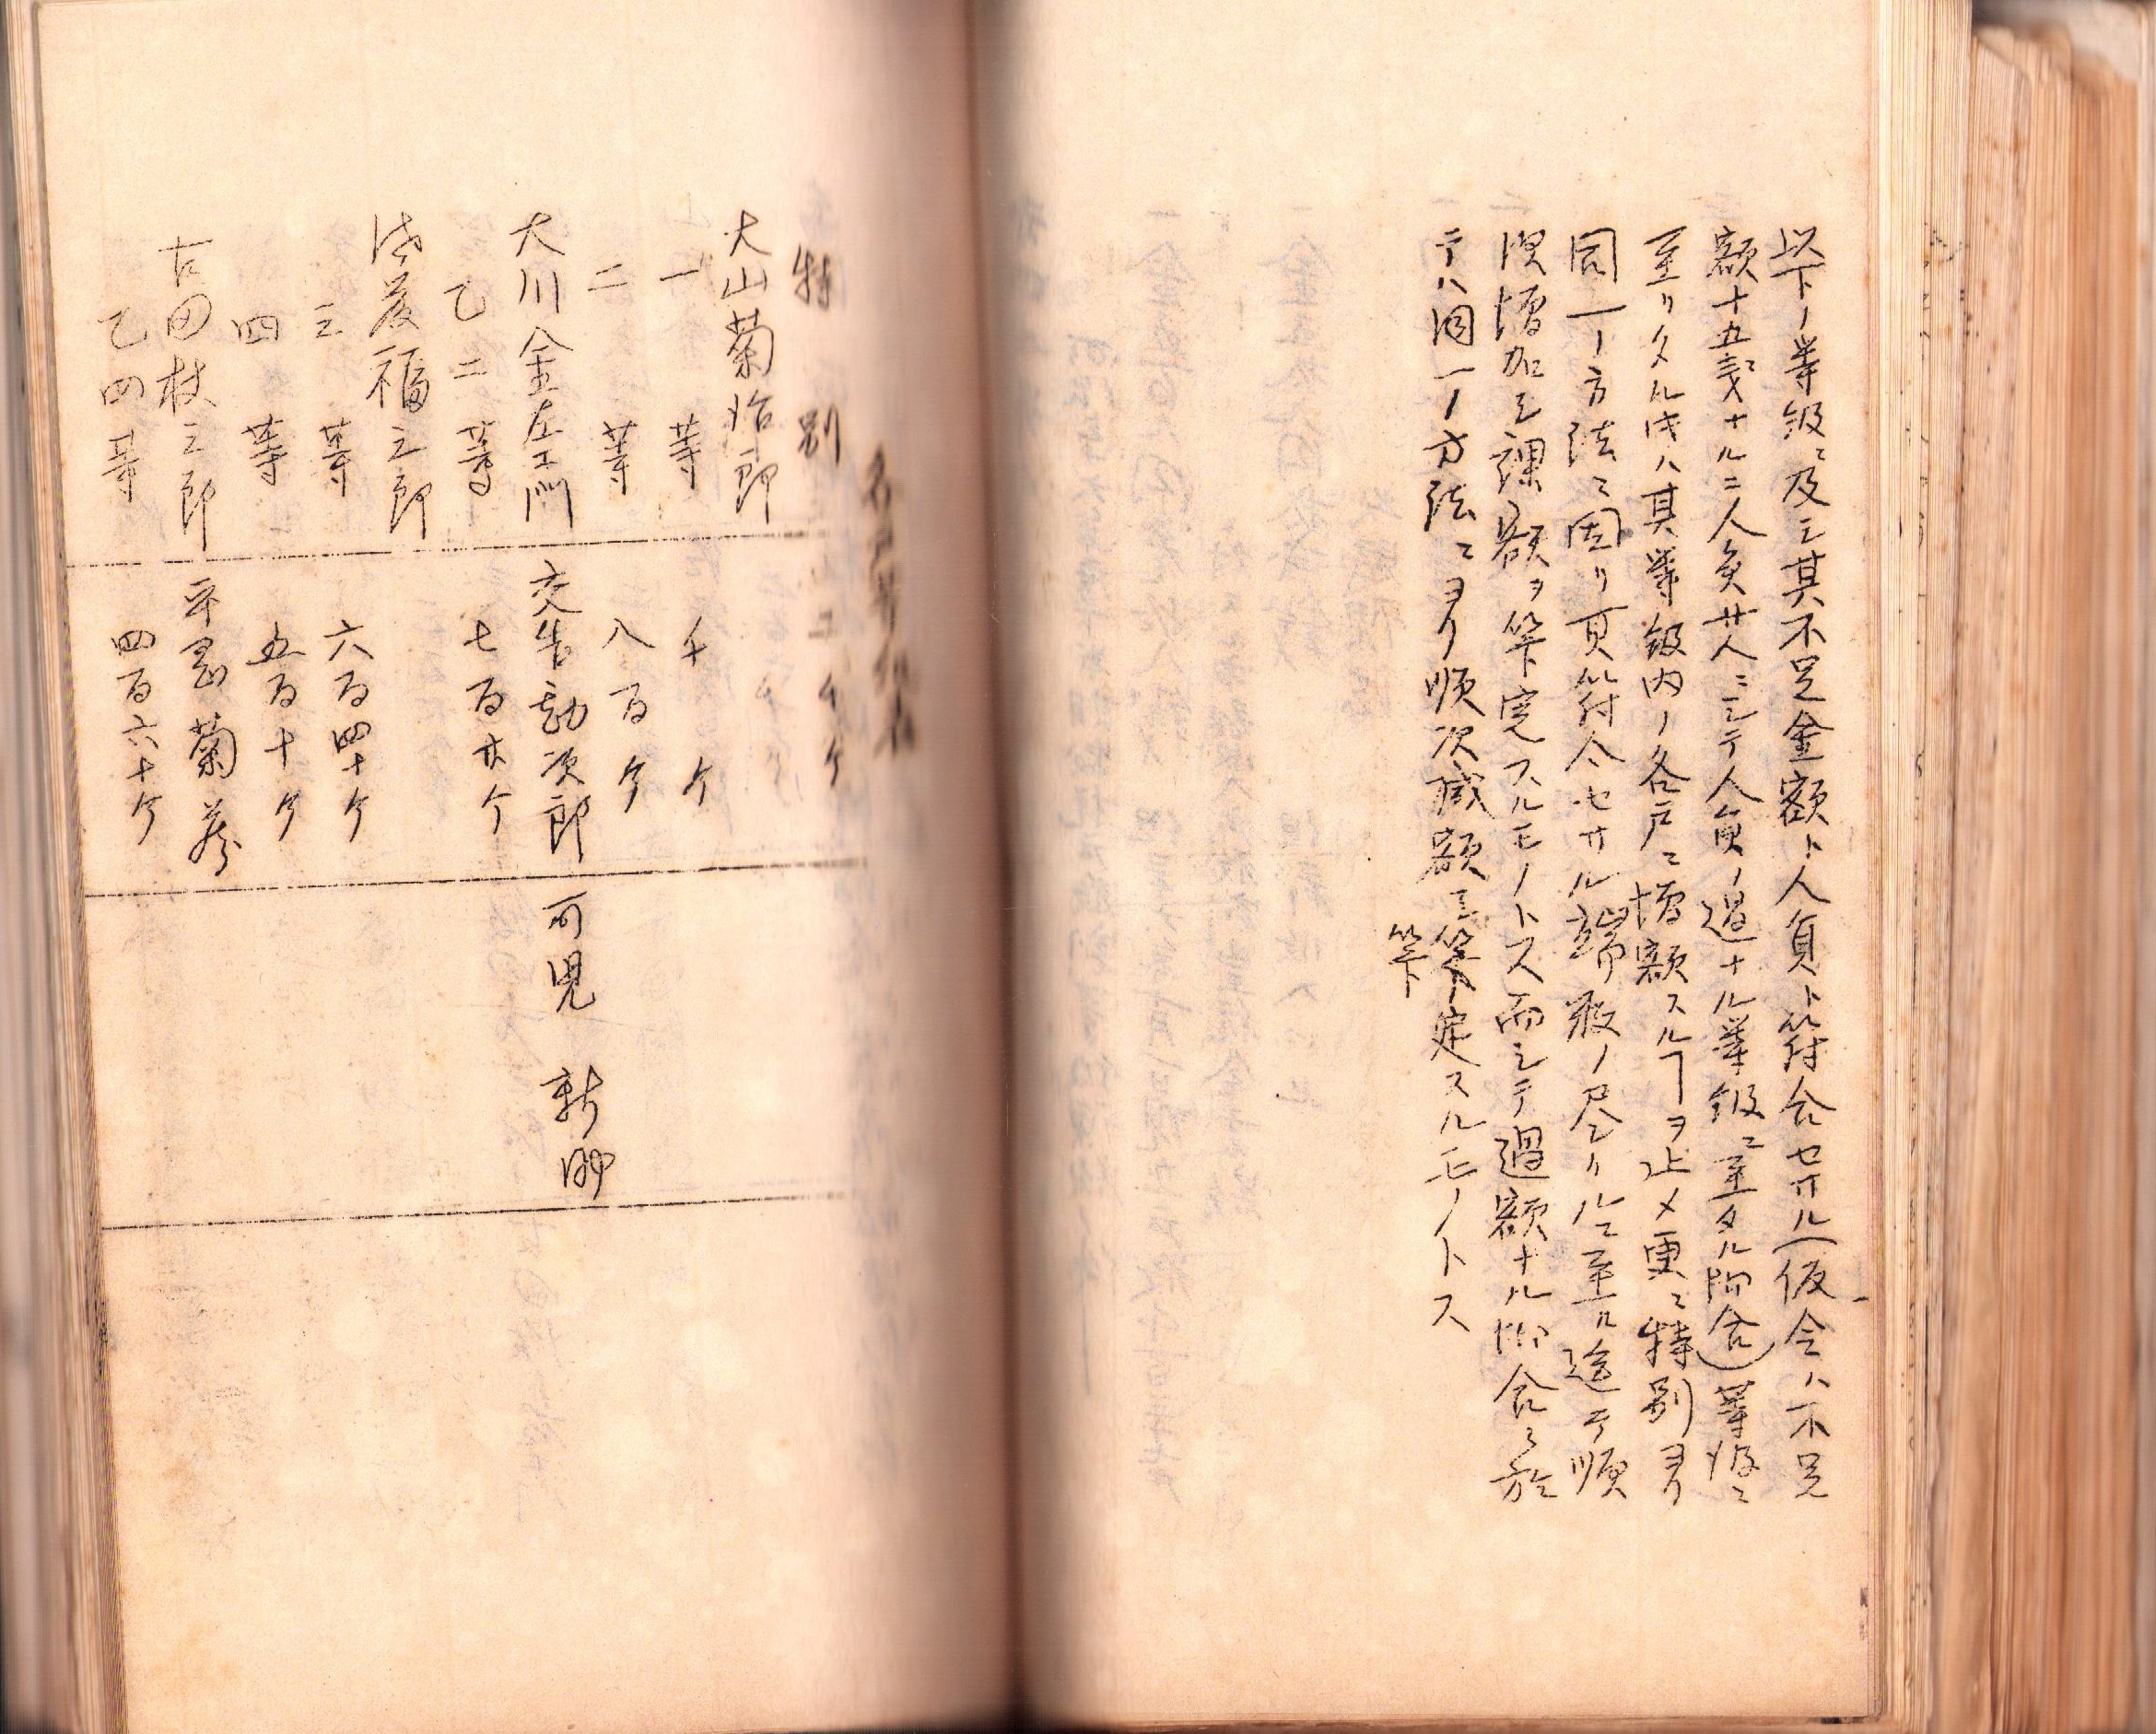 以下ノ等級ニ及ヒ其不足金額ト人員ト符合セサル(仮令ハ不足
額十五銭ナルニ人員廿人ニシテ人員ノ過ナル等級ニ至タル際合)等級ニ
至リタル時ハ其等級内ノ各戸ニ増額スルヿヲ止メ更ニ特別ヨリ
同一ノ方法ニ因リ可符合セサル端数ノ尽クルニ至ル迄テ順
次増加シ課額ヲ算定スルモノトス而シテ過額ナル際合ニ於
テハ同一ノ方法ニヨリ順次減額シ算定スルモノトス
算
特別 二千ケ
大山菊治郎
一等 千ケ
二等 八百ケ
大川金左エ門 交告勘次郎 可児新助
乙二等 七百廿ケ
福三郎
三等 六百四十ケ
四等 五百十ケ
古田枝三郎 菊蔵
乙四等 四百六十ケ